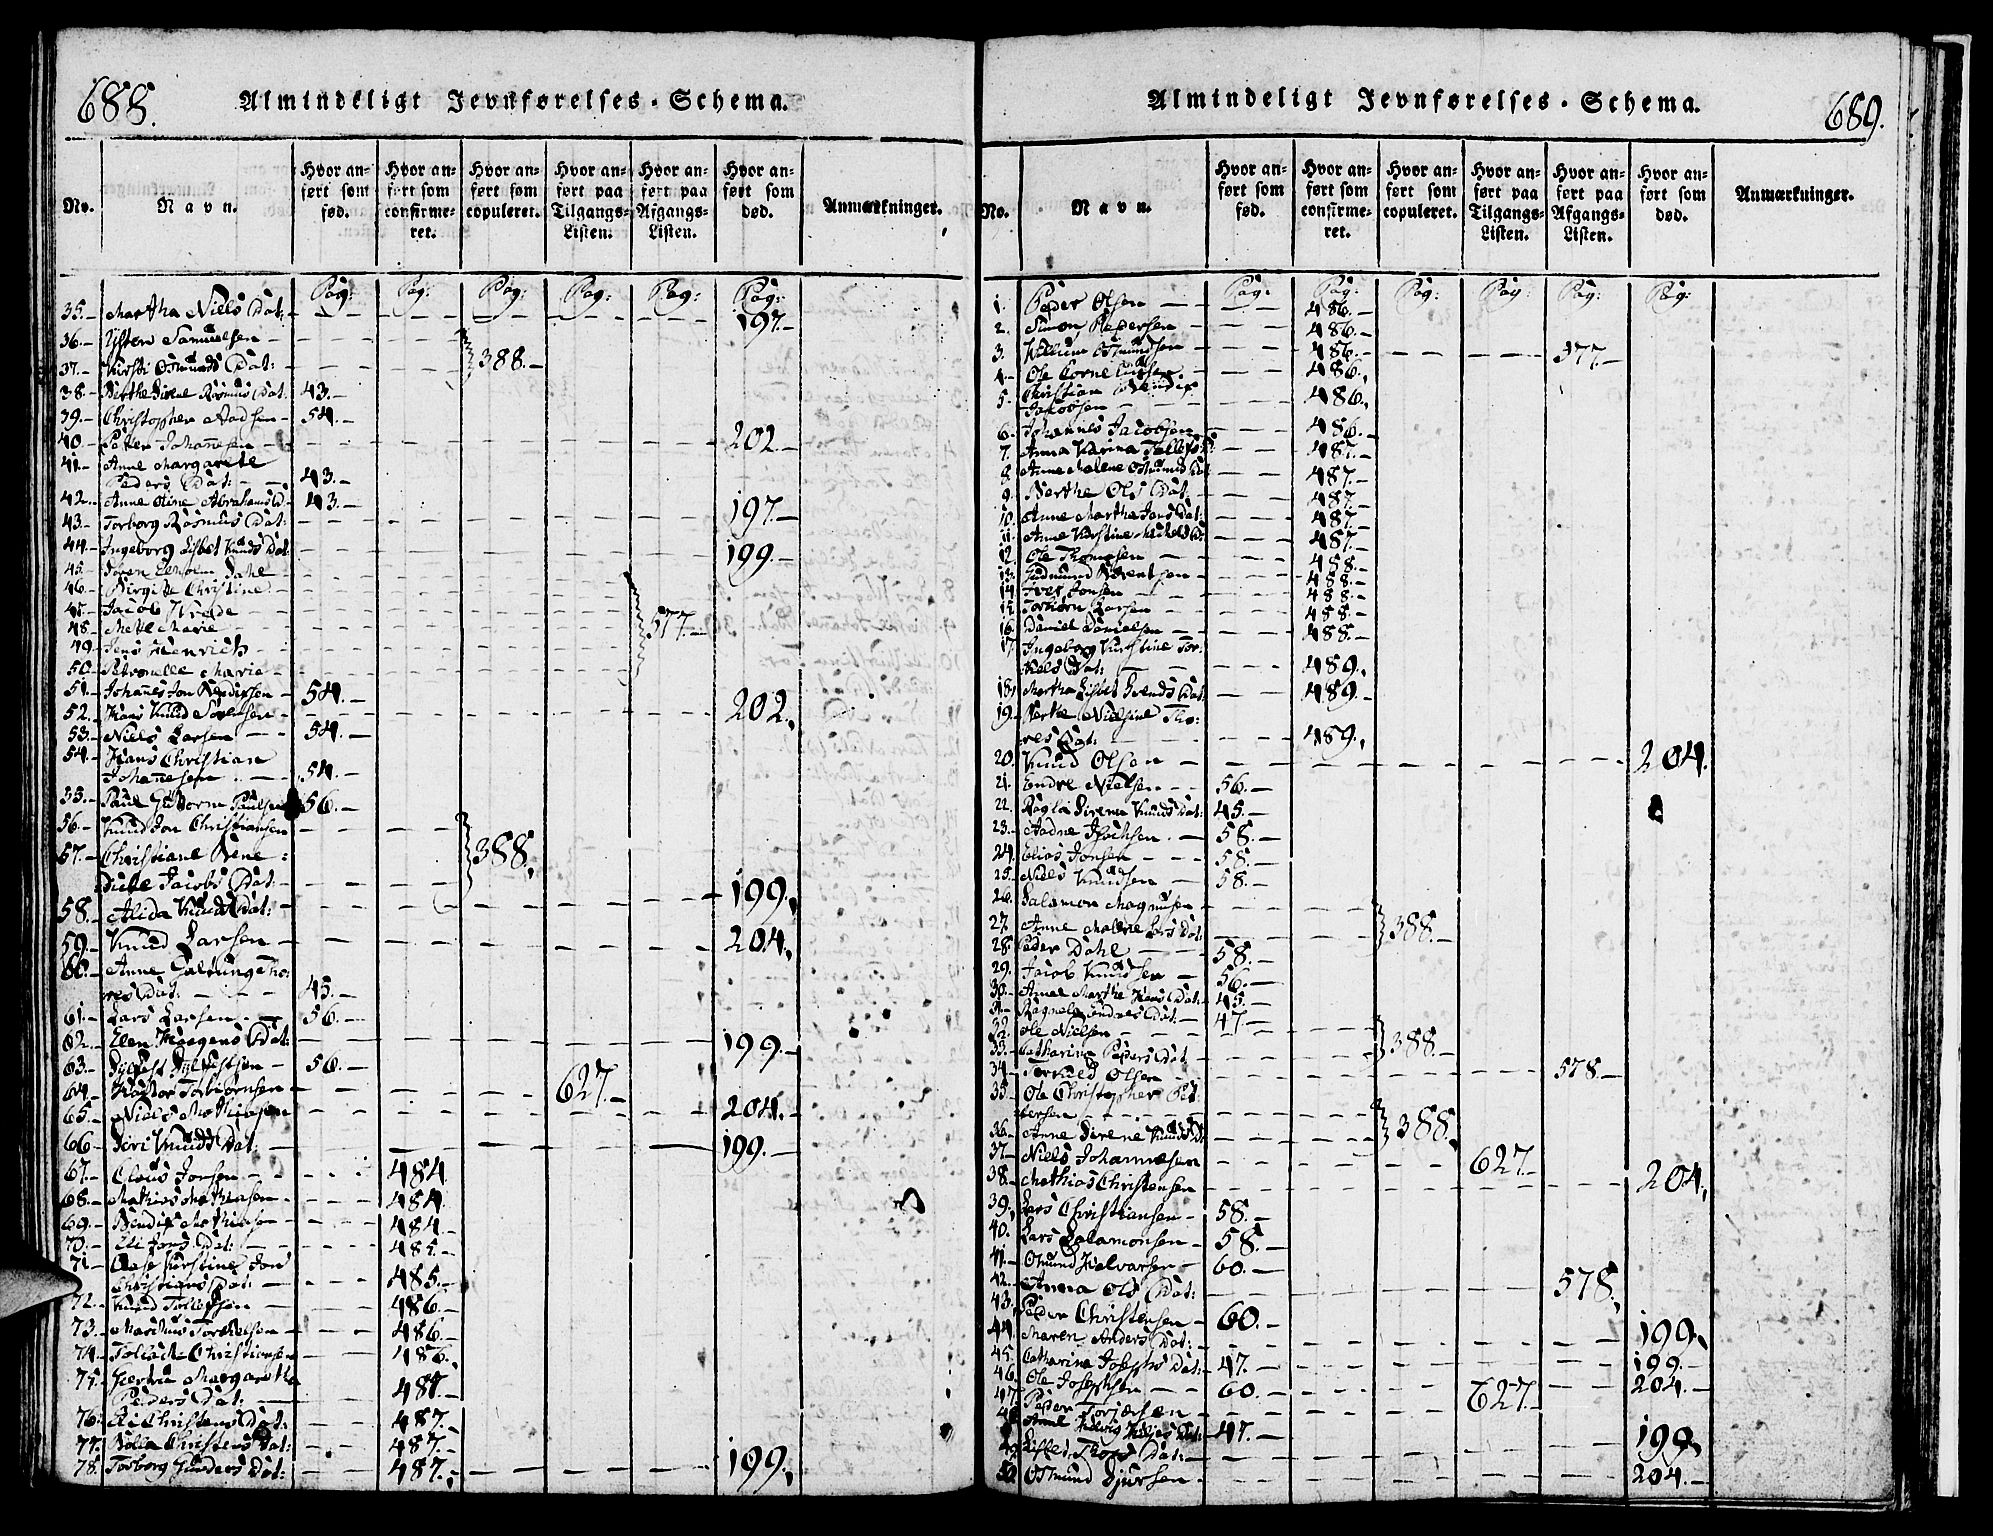 688.
Almindeligt Jevnførelses-Schema.
No.
Navn.
Hvor anført som fød.
Hvor anført som confirmeret.
Hvor anført som copuleret.
Hvor anført paa Tilgangs-Listen.
Hvor anført paa Afgangs-Listen.
Hvor anført som død.
Anmærkninger.
Pag: Pag: Pag: Pag: Pag: Pag:
35. Martha Niels Dat: 197.
36. Samuelsen
37. Kirsti Osmunds Dat: 388.
38. Berthe Sirene Rasmus Dat 43.
39. Christopher Aadsen 54.
40. Peter Johanesen 202.
41. Anne Margarete
Peders Dat: 43.
42. Anne Oline Abrahams D. 43.
43. Torborg Rasmus Dat: 197.
44. Ingeborg Lisbet Knuds Dat: 199.
45. Søren Dahl
46. Birgitte Christine
47. Jacob
48. Mette Marie 577.
49. Jens Henrich
50. Petronelle Marie
51. Johanes Jon Bendixsen 54.
52. Hans Knud Sørensen 202.
53. Niels Larsen 54.
54. Hans Christian
Johanesen 54.
55. Paul Guttorm Paulsen 56.
56. Knud Jon Christiansen
57. Christiane Bene= 388.
dicte Jacobs Dat: 199.
58. Alida Knuds Dat:
59. Knud Larsen 204.
60. Anne Tho:
res Dat: 45.
61. Lars Larsen 56.
62. Elen Haagens Dat: 199.
63. Sylfest Sylfestsen 56.
64. Torbiørnsen 627.
65. Niels Mathiasen 204.
66. Siri Knuds Dat: 199.
67. Claus Jonsen 484
68. Mathias Mathiasen 484.
69. Bendix Mathiasen 484.
70. Eli Jons Dat: 485.
71. Aase Kirstine Jon
Christians Dat: 485.
72. Knud Tollefsen 486.
73. Marthus Torkelsen 486.
74. Tollack Christiansen 486.
75. Gertrue Margaretha
Peders Dat: 487.
76. Eli Christens Dat: 487.
77. Christens Dat: 487.
78. Torborg Gunders Dat: 487. 199.
Almindeligt Jevnførelses-Schema.
689.
No.
Navn.
Hvor anført som fød.
Hvor anført som confirmeret.
Hvor anført som copuleret.
Hvor anført paa Tilgangs-Listen.
Hvor anført paa Afgangs-Listen.
Hvor anført som død.
Anmærkninger.
Pag: Pag: Pag: Pag: Pag: Pag:
1. Peder Olsen 486.
2. Simon Pedersen 486.
3. Willum Osmundsen 486. 577.
4. Ole Corneliussen 486.
5. Christian Bendix
Jakobsen 486.
6. Johannes Jacobsen 486.
7. Anna Karina Tollefs D: 487.
8. Anne Malene Osmunds Dat 487.
9. Berthe Ols Dat: 487.
10. Anne Martha Jons Dat: 487.
11. Anne Kirstine Michels D: 487.
12. Ole Thomesen 488.
13. Gudmund 488.
14. Iver Jonsen 488.
15. Torbiørn Larsen 488.
16. Daniel Danielsen 488.
17. Ingeborg Kirstine Tor:
kels Dat: 489.
18. Martha Lisbet Svends Dat: 489.
19. Berthe Nielsine Tho:
res Dat: 489.
20. Knud Olsen 204.
21. Endre Nielsen 56.
22. Ragla Sirene Knuds Dat: 45.
23. Aadne Isachsen 58.
24. Elias Jonsen 58.
25. Niels Knudsen 58.
26. Salamon Magnusen
27. Anne Malene Lars Dat: 388.
28. Peder Dahl 58.
29. Jacob Knudsen 56.
30. Anne Marthe Hans Dat: 45.
31. Ragnele Endres Dat: 47.
32. Ole Nielsen
33. Catharina Peders Dat: 388.
34. Torkild Olsen 578.
35. Ole Christopher Pet:
tersen
36. Anne Sirene Knuds D: 388.
37. Niels Johannesen 627.
38. Mathias Christensen 204.
39. Lars Christiansen 58.
40. Lars Salamonsen 58.
41. Osmund Halvorsen 60.
42. Anna Ols Dat: 578.
43. Peder Christensen 60.
44. Maren Anders Dat: 199.
45. Catharina Josephs Dat: 47. 199.
46. Ole Josephsen 60. 204.
47. Peder 627.
48. Anne Dat: 47.
49. Lisbet Thors Dat: 199.
50. Osmund Sjursen 204.